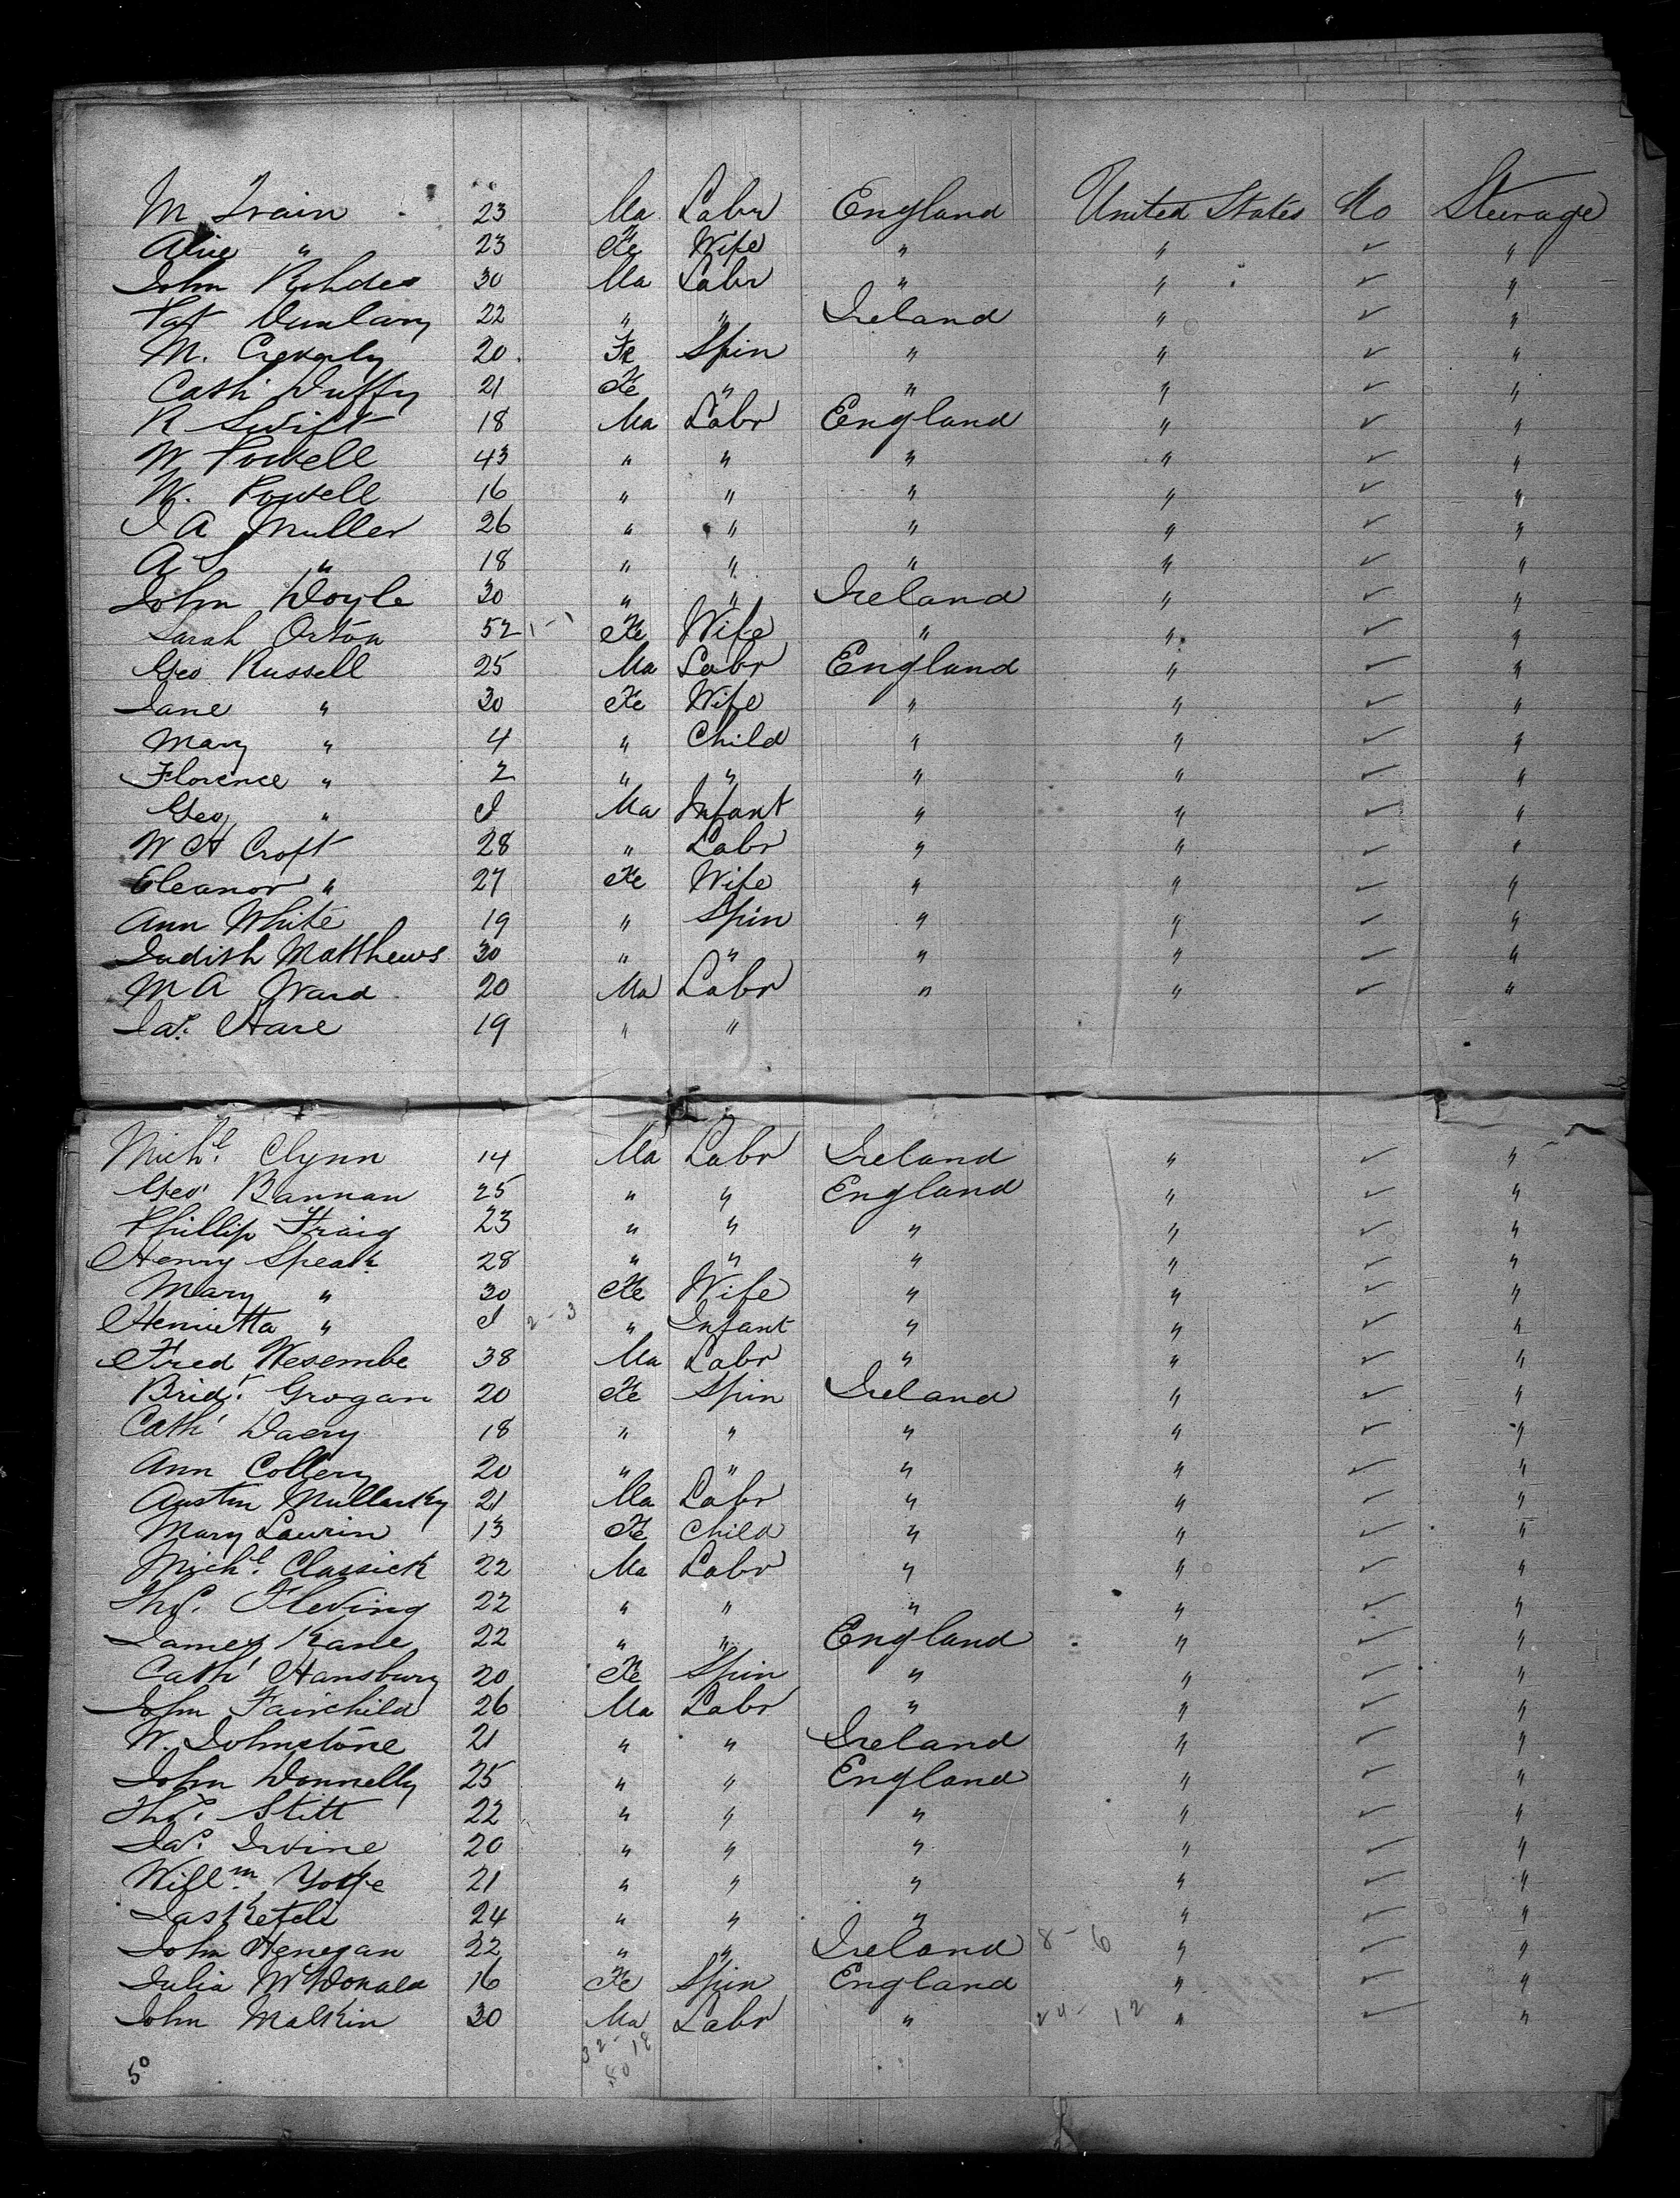 M Train 23 Ma Labr England United States No Steerage
Alice " 23 Fe Wife " " ✓ "
John Rohdes 30 Ma Labr " " ✓ "
Pat 22 " " Ireland " ✓ "
M. 20. Fe Spin " " ✓ "
Cath Duffy 21 Fe " " " ✓ "
R Swift 18 Ma Labr England " ✓ "
W Powell 43 " " " " ✓ "
W. Powell 16 " " " " ✓ "
J A Muller 26 " " " " ✓ "
A S " 18 " " " " ✓ "
John Doyle 30 " " Ireland " ✓ "
Sarah Orton 52 1 - 1 Fe Wife " " ✓ "
Geo Russell 25 Ma Labr England " ✓ "
Jane " 30 Fe Wife " " ✓ "
Mary " 4 " Child " " ✓ "
Florence " 2 " " " " ✓ "
Geo " I Ma Infant " " ✓ "
W H Croft 28 " Labr " " ✓ "
Eleanor " 27 Fe Wife " " ✓ "
Ann White 19 " Spin " " ✓ "
Judith Matthews 30 " " " " ✓ "
M A Ward 20 Ma Labr " " ✓ "
Jas. Hare 19 " "
Michl. Clynn 14 Ma Labr Ireland " ✓ "
Geo Bannan 25 " " England " ✓ "
Phillip 23 " " " " ✓ "
Henry Speak 28 " " " " ✓ "
Mary " 30 Fe Wife " " ✓ "
Henrietta " I 2 - 3 " Infant " " ✓ "
Fred Wesembe 38 Ma Labr " " ✓ "
Bridt. Grogan 20 Fe Spin Ireland " ✓ "
Cath Dacry 18 " " " " ✓ "
Ann Collery 20 " " " " ✓ "
Austin Mullarky 21 Ma Labr " " ✓ "
Mary Laurin 13 Fe Child " " ✓ "
Michl. Classick 22 Ma Labr " " ✓ "
Thos. Fleving 22 " " " " ✓ "
James Kane 22 " " England " ✓ "
Cath Hansbury 20 Fe Spin " " ✓ "
John Fairchild 26 Ma Labr " " ✓ "
W. Johnstone 21 " " Ireland " ✓ "
John Donnelly 25 " " England " ✓ "
Thos. Stitt 22 " " " " ✓ "
Jas. Irvine 20 " " " " ✓ "
Willm. 21 " " " " ✓ "
Jas 24 " " " " ✓ "
John Henegan 22 " " Ireland 8 - 6 " ✓ "
Julia McDonald 16 Fe Spin England " ✓ "
John Malkin 30 Ma Labr " 24 - 12 " ✓ "
32 - 18
50 50